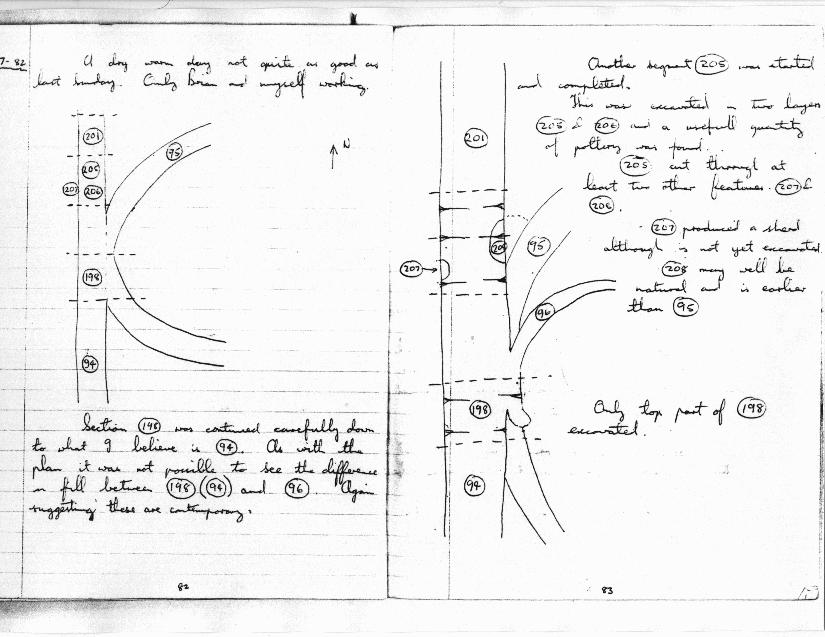 7-82
A dry warm day not quite as good as
last Sunday. Only Brian and myself working.
201
205
207 206
95
N
198
94
Section 198 was continued carefully down
to what I believe is 94. As with the
plan it was not possible to see the difference
in fill between 198 (94) and 96. Again
suggesting these are contemporary.
82
Another segment 205 was started
and completed.
This was excavated in two layers
205 & 206 and a usefull quantity
of pottery was found.
205 cut through at
least two other features. 207 &
208.
207 produced a sherd
although is not yet excavated
208 may well be
natural and is earlier
than 95
201
208
95
207
96
198
94
Only top part of 198
excavated.
83